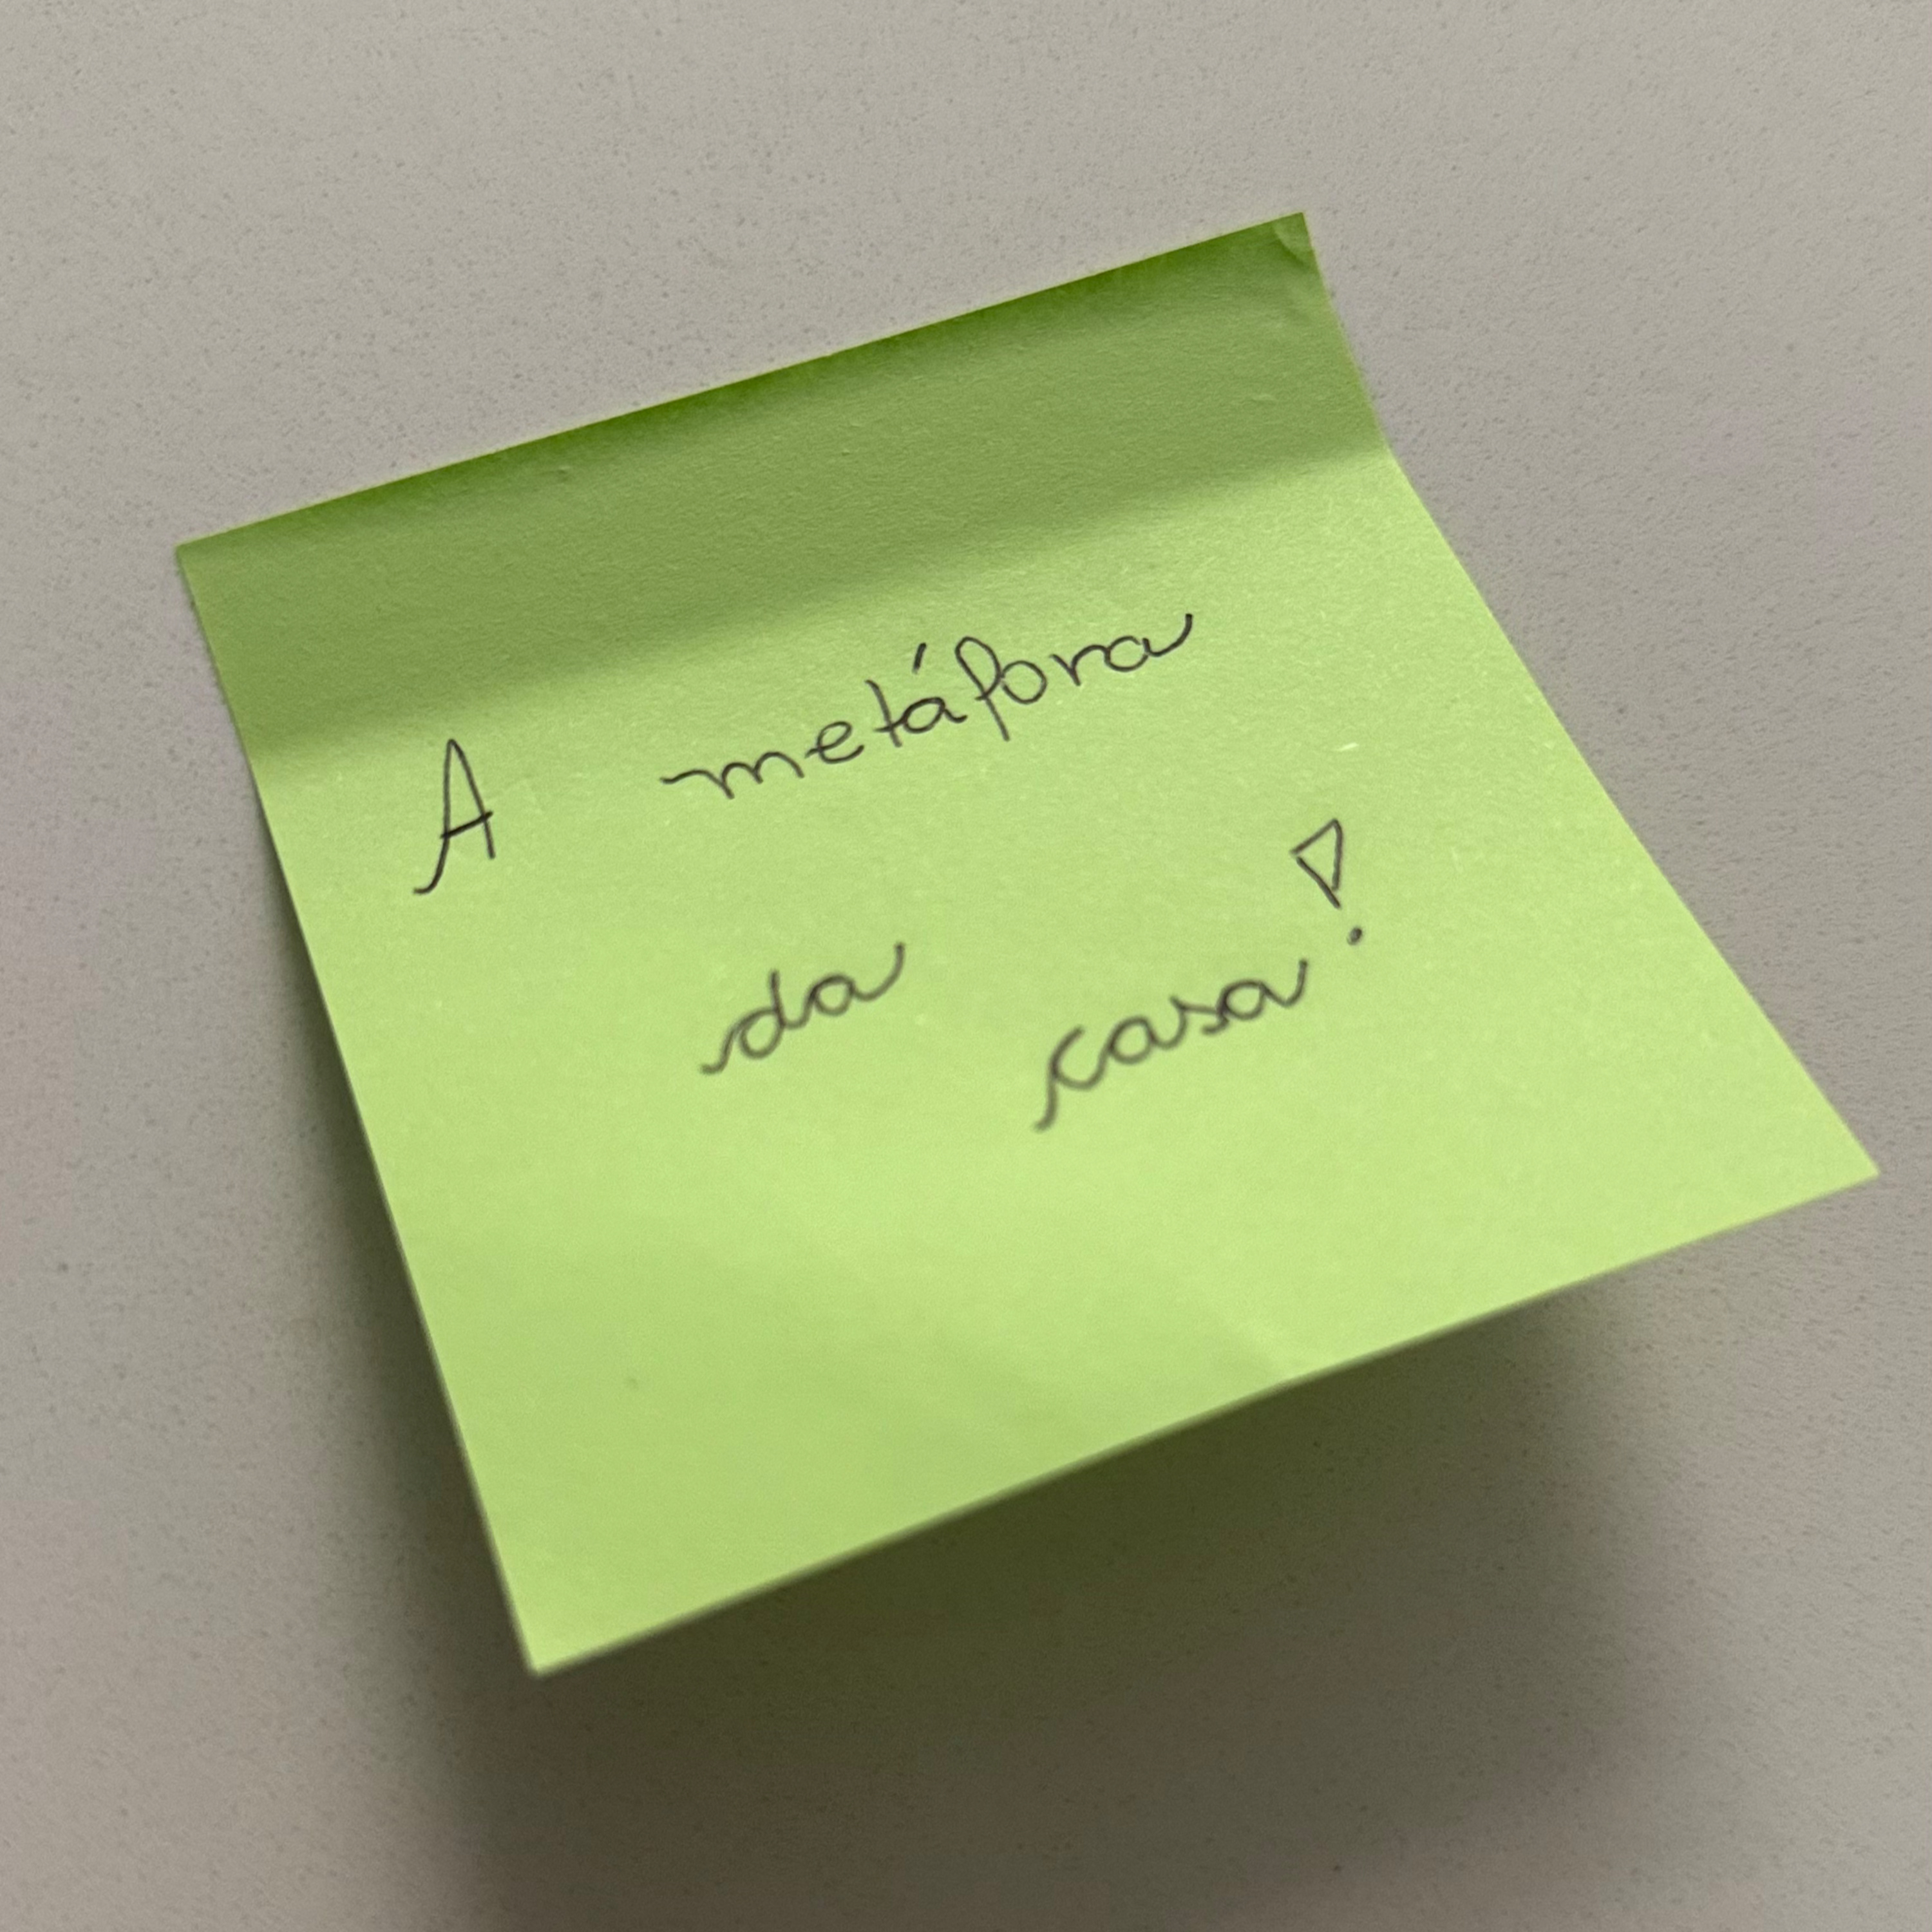 A metáfora
da casa!